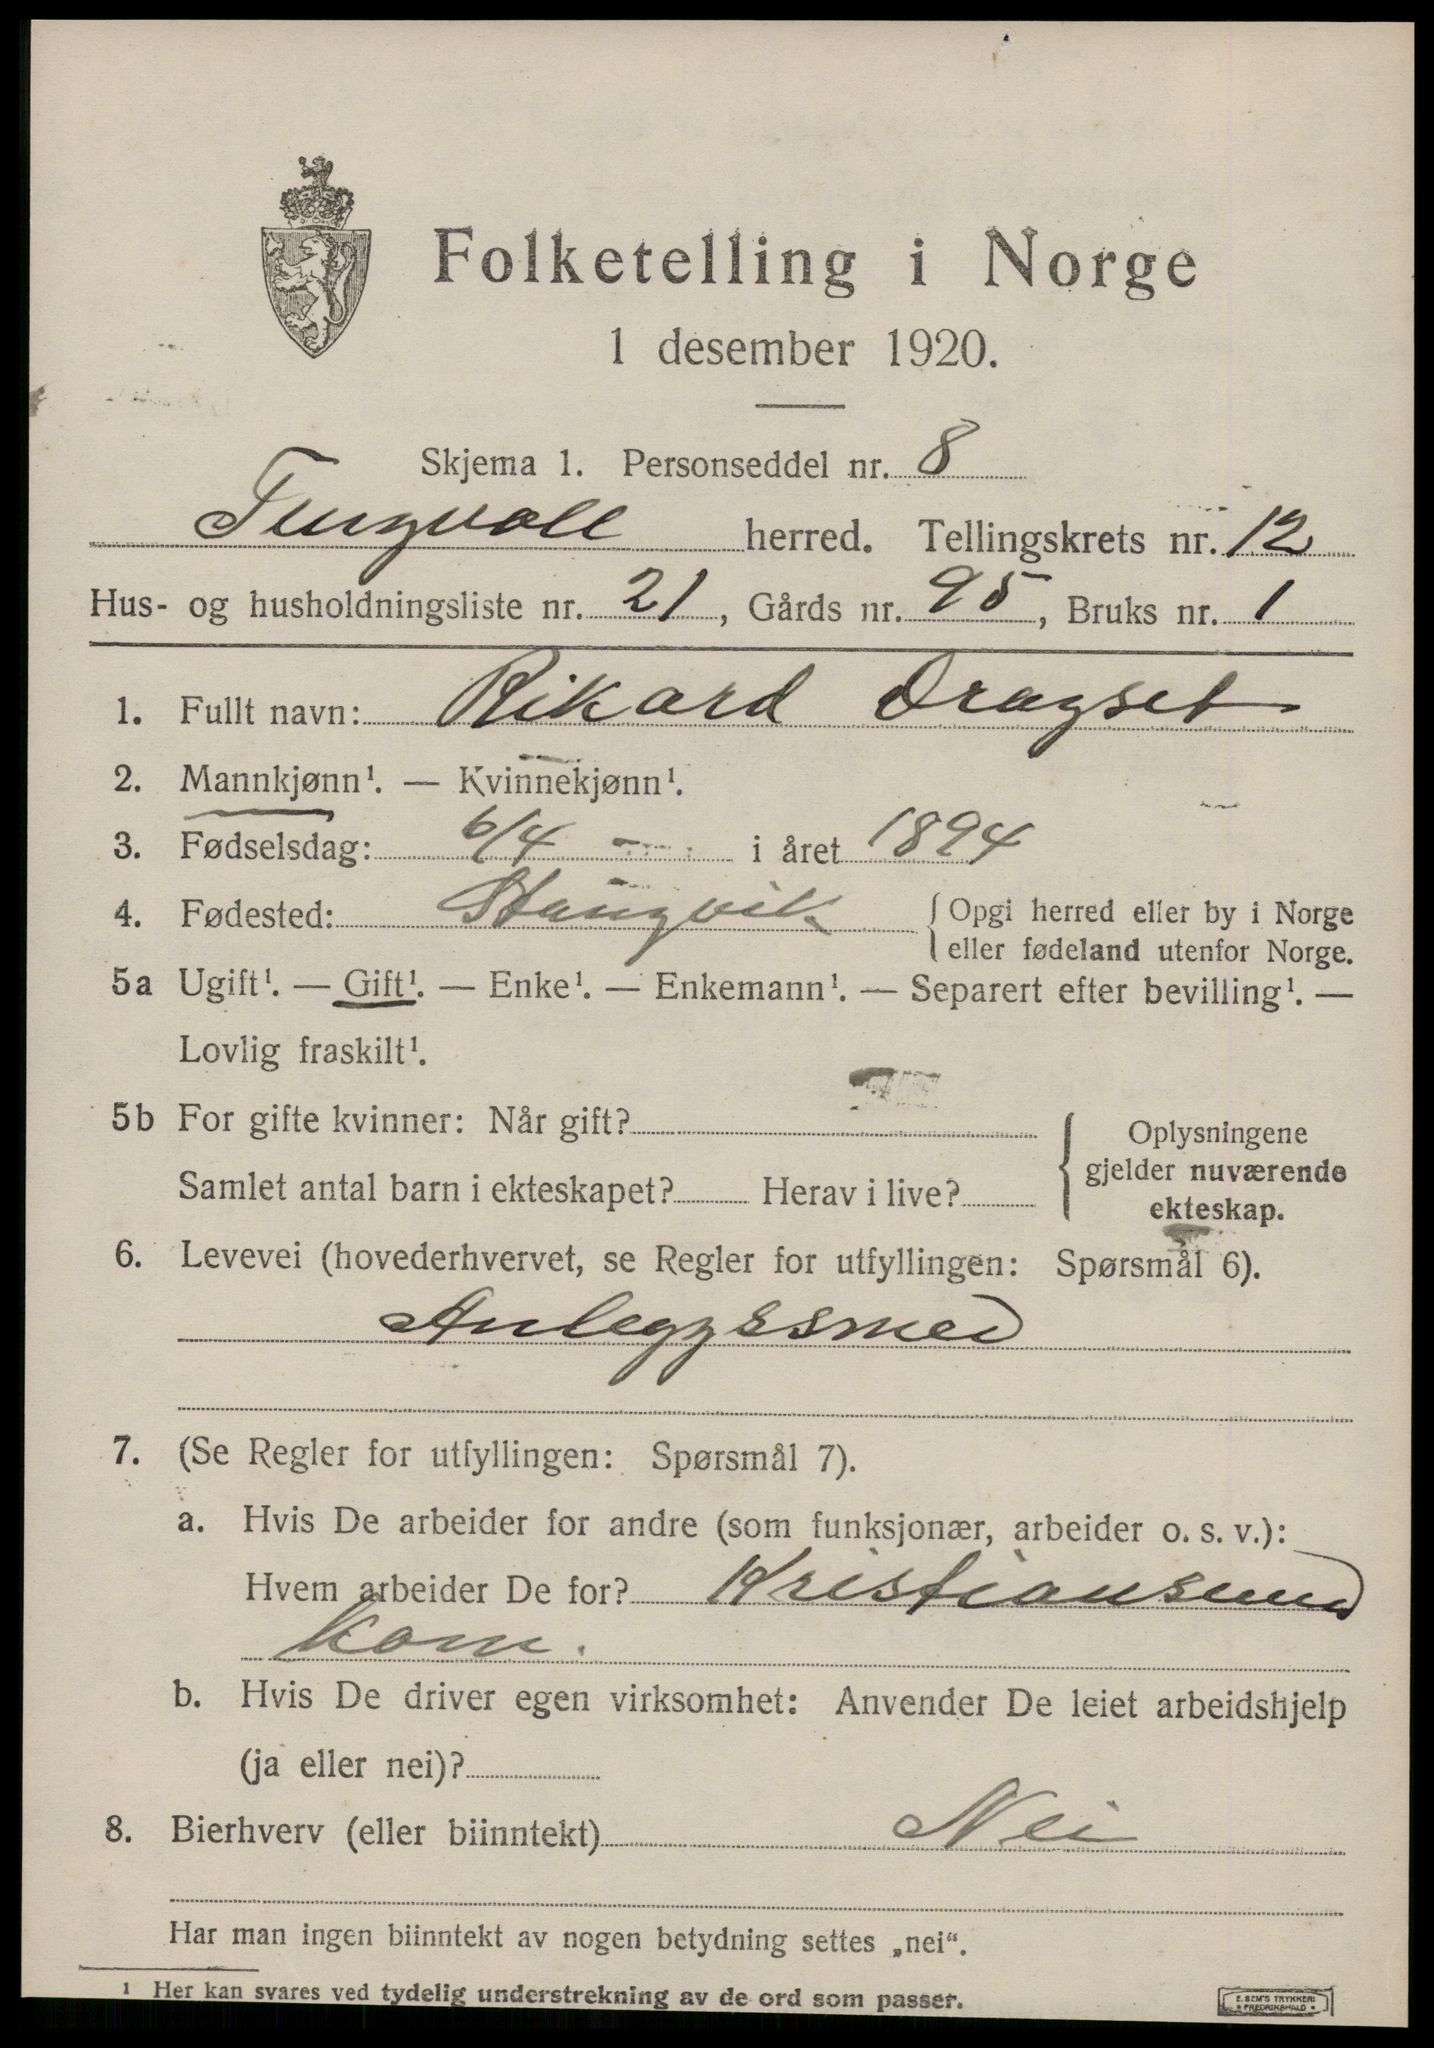 Folketelling i Norge
1 desember 1920.
Skjema 1. Personseddel nr. 8
Tingvoll herred. Tellingskrets nr. 12
Hus- og husholdningsliste nr. 21, Gårds nr. 95, Bruks nr. 1
1. Fullt navn: Rikard Dragset
2. Mannkjønn¹. — Kvinnekjønn¹.
3. Fødselsdag: 6/4 i året 1894
4. Fødested: Stangvik { Opgi herred eller by i Norge
eller fødeland utenfor Norge.
5a Ugift¹. — Gift¹. — Enke¹. — Enkemann¹. — Separert efter bevilling¹. —
Lovlig fraskilt¹.
5b For gifte kvinner: Når gift?
Samlet antal barn i ekteskapet? Herav i live?
{ Oplysningene
gjelder nuværende
ekteskap.
6. Levevei (hovederhvervet, se Regler for utfyllingen: Spørsmål 6).
Anleggssmed
7. (Se Regler for utfyllingen: Spørsmål 7).
a. Hvis De arbeider for andre (som funksjonær, arbeider o. s. v.):
Hvem arbeider De for? Kristiansund
kom.
b. Hvis De driver egen virksomhet: Anvender De leiet arbeidshjelp
(ja eller nei)?
8. Bierhverv (eller biinntekt) Nei
Har man ingen biinntekt av nogen betydning settes „nei“.
¹ Her kan svares ved tydelig understrekning av de ord som passer.
E. SEM'S TRYKKERI
FREDRIKSHALD